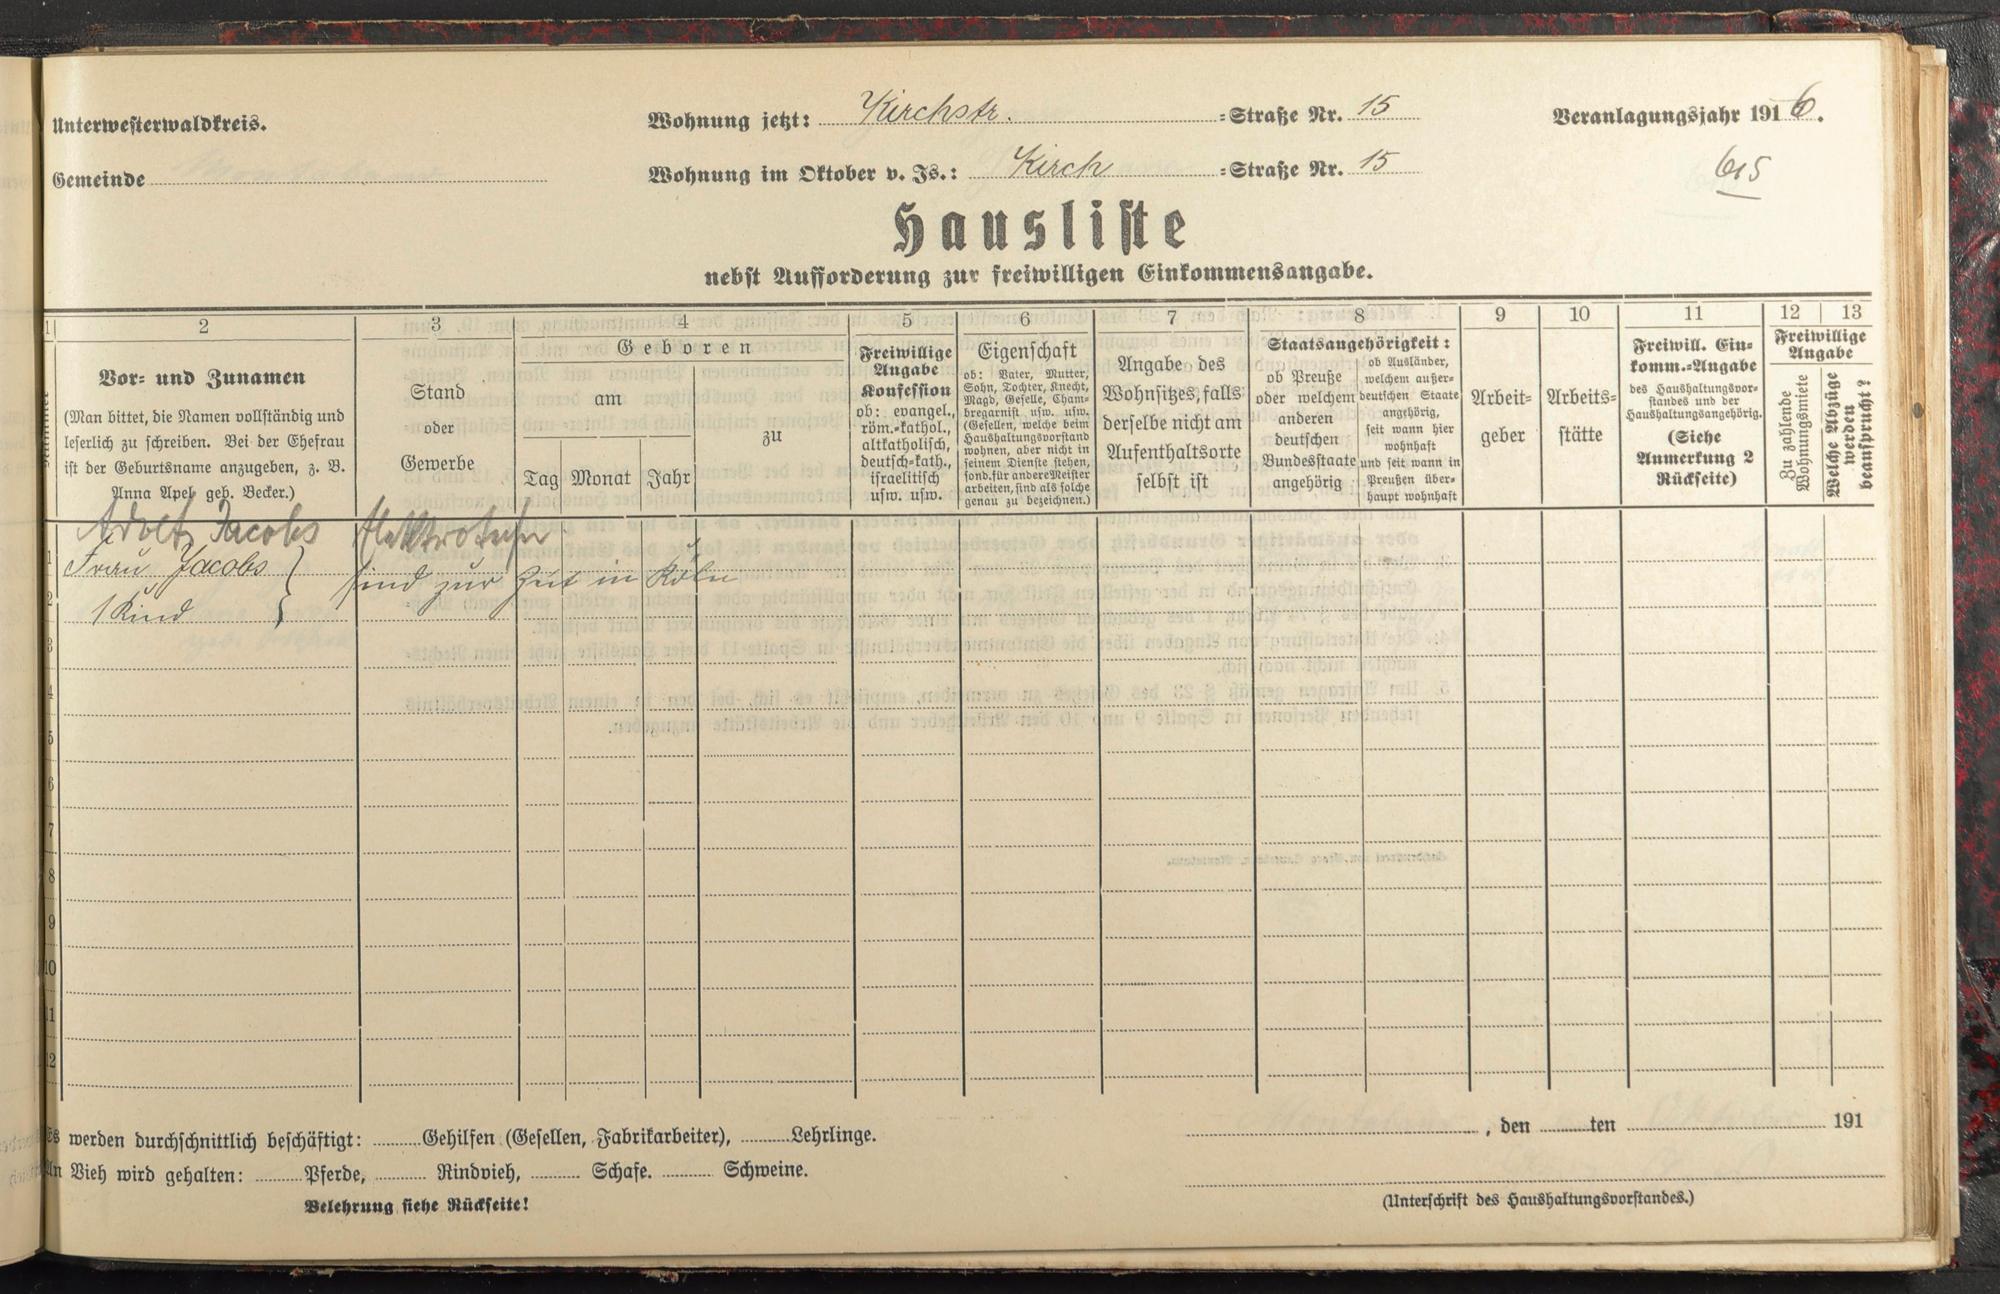 Unterwesterwaldkreis.
Wohnung jetzt: Kirchstr. =Straße Nr. 15
Veranlagungsjahr 1916.
Gemeinde
Wohnung im Oktober v. Js.: Kirch =Straße Nr. 15
615
Hausliste
nebst Aufforderung zur freiwilligen Einkommensangabe.
1 2 3 4 5 6 7 8 9 10 11 12 13
Nummer
Vor= und Zunamen
(Man bittet, die Namen vollständig und
leserlich zu schreiben. Bei der Ehefrau
ist der Geburtsname anzugeben, z. B.
Anna Apel geb. Becker.)
Stand
oder
Gewerbe
Geboren
am
zu
Tag Monat Jahr
Freiwillige
Angabe
Konfession
ob: evangel.,
röm.=kathol.,
altkatholisch,
deutsch=kath.,
israelitisch
usw. usw.
Eigenschaft
ob: Vater, Mutter,
Sohn, Tochter, Knecht,
Magd, Geselle, Cham=
bregarnist usw. usw.
(Gesellen, welche beim
Haushaltungsvorstand
wohnen, aber nicht in
seinem Dienste stehen,
sond. für andere Meister
arbeiten, sind als solche
genau zu bezeichnen.)
Angabe des
Wohnsitzes, falls
derselbe nicht am
Aufenthaltsorte
selbst ist
Staatsangehörigkeit:
ob Preuße
oder welchem
anderen
deutschen
Bundesstaate
angehörig
ob Ausländer,
welchem außer=
deutschen Staate
angehörig,
seit wann hier
wohnhaft
und seit wann in
Preußen über=
haupt wohnhaft
Arbeit=
geber
Arbeits=
stätte
Freiwill. Ein=
komm.=Angabe
des Haushaltungsvor=
standes und der
Haushaltungsangehörig.
(Siehe
Anmerkung 2
Rückseite)
Freiwillige
Angabe
Zu zahlende
Wohnungsmiete
Welche Abzüge
werden
beansprucht?
Adolf Jacobs
1 Frau Jacobs } sind zur Zeit in Köln
2 1 Kind
3
4
5
6
7
8
9
10
11
12
Es werden durchschnittlich beschäftigt: Gehilfen (Gesellen, Fabrikarbeiter), Lehrlinge.
, den ten 191
An Vieh wird gehalten: Pferde, Rindvieh, Schafe. Schweine.
Belehrung siehe Rückseite!
(Unterschrift des Haushaltungsvorstandes.)